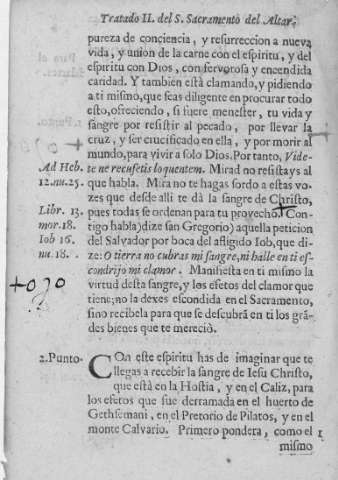 Tratado II. del S. Sacramento del Altar,
pureza de conciencia, y resurreccion a nueva
vida, y union de la carne con el espiritu, y del
espiritu con Dios, con fervorosa y encendida
caridad. Y tambien està clamando, y pidiendo
a ti mismo, que seas diligente en procurar todo
esto, ofreciendo, si fuere menester, tu vida y
sangre por resistir al pecado, por llevar la
cruz, y ser crucificado en ella, y por morir al
mundo, para vivir a solo Dios. Por tanto, Vide-
Ad Heb. te ne recusetis loquentem. Mirad no resistays al
12. nu. 25. que habla. Mira no te hagas sordo a estas vo-
zes que desde alli te dà la sangre de Christo,
Libr. 13. pues todas se ordenan para tu provecho. Con-
mor. 18. tigo habla) dize san Gregorio) aquella peticion
Iob 16. del Salvador por boca del afligido Iob, que di-
nu. 18. ze: O tierra no cubras mi sangre, ni halle en ti es-
condrijo mi clamor. Manifiesta en ti mismo la
+ojo virtud desta sangre, y los efetos del clamor que
tiene; no la dexes escondida en el Sacramento,
sino recibela para que se descubra en ti los grã-
des bienes que te mereciò.
2. Punto. COn este espiritu has de imaginar que te
llegas a recebir la sangre de Iesu Christo,
que està en la Hostia, y en el Caliz, para
los efetos que fue derramada en el huerto de
Gethsemani, en el Pretorio de Pilatos, y en el
monte Calvario. Primero pondera, como el 1
mismo